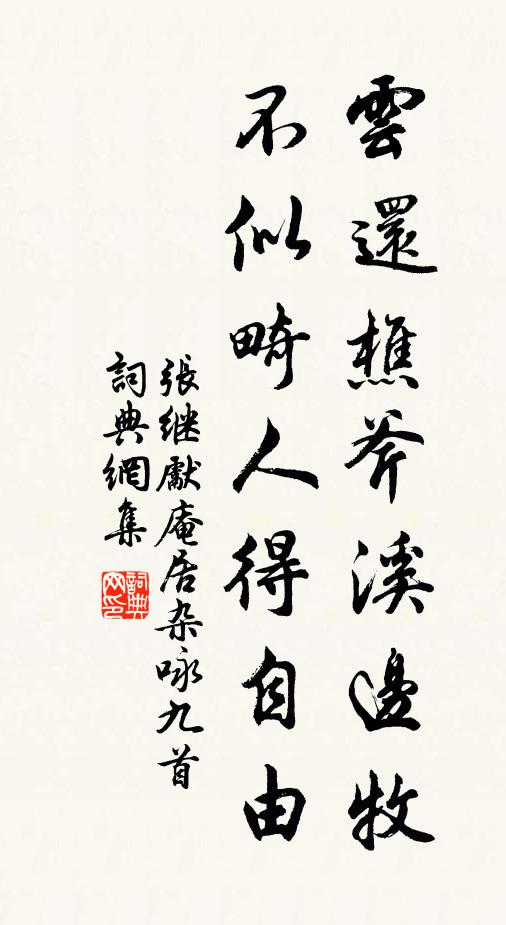 雲還樵斧溪邊牧
不似畸人得自由
張继獻庵居杂咏九首
詞典網集
詞典网印